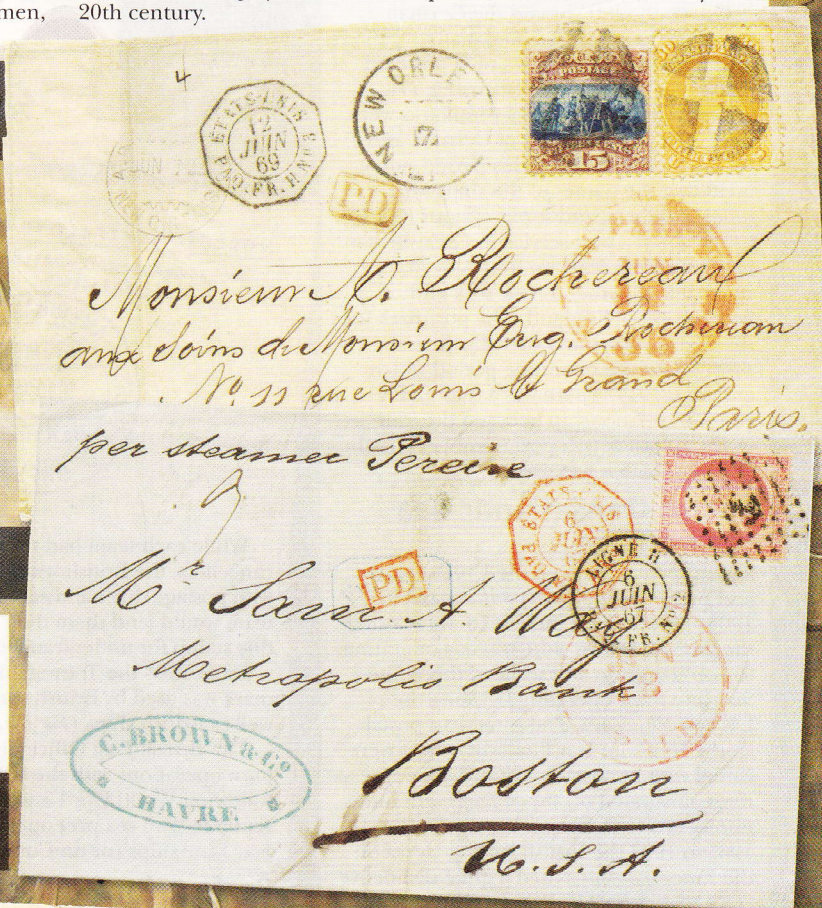 men,
20th century.
4
NEW ORLE
ETATS-UNIS
12
JUIN
69
PAQ. FR. H No 3
POSTAGE
15
PD
PAID
JUN
Monsieur A. Rochereau
aux Soins de Monsieur Eug. Rochereau
No. 11 rue Louis le Grand
Paris.
per steamer Pereire
ETATS-UNIS
6
JUIN
LIGNE H
6
JUIN
67
PAQ. FR. No 2
PD
Mr Sam. A. Way
Metropolis Bank
PAID
C. BROWN & Co
HAVRE
Boston
U.S.A.